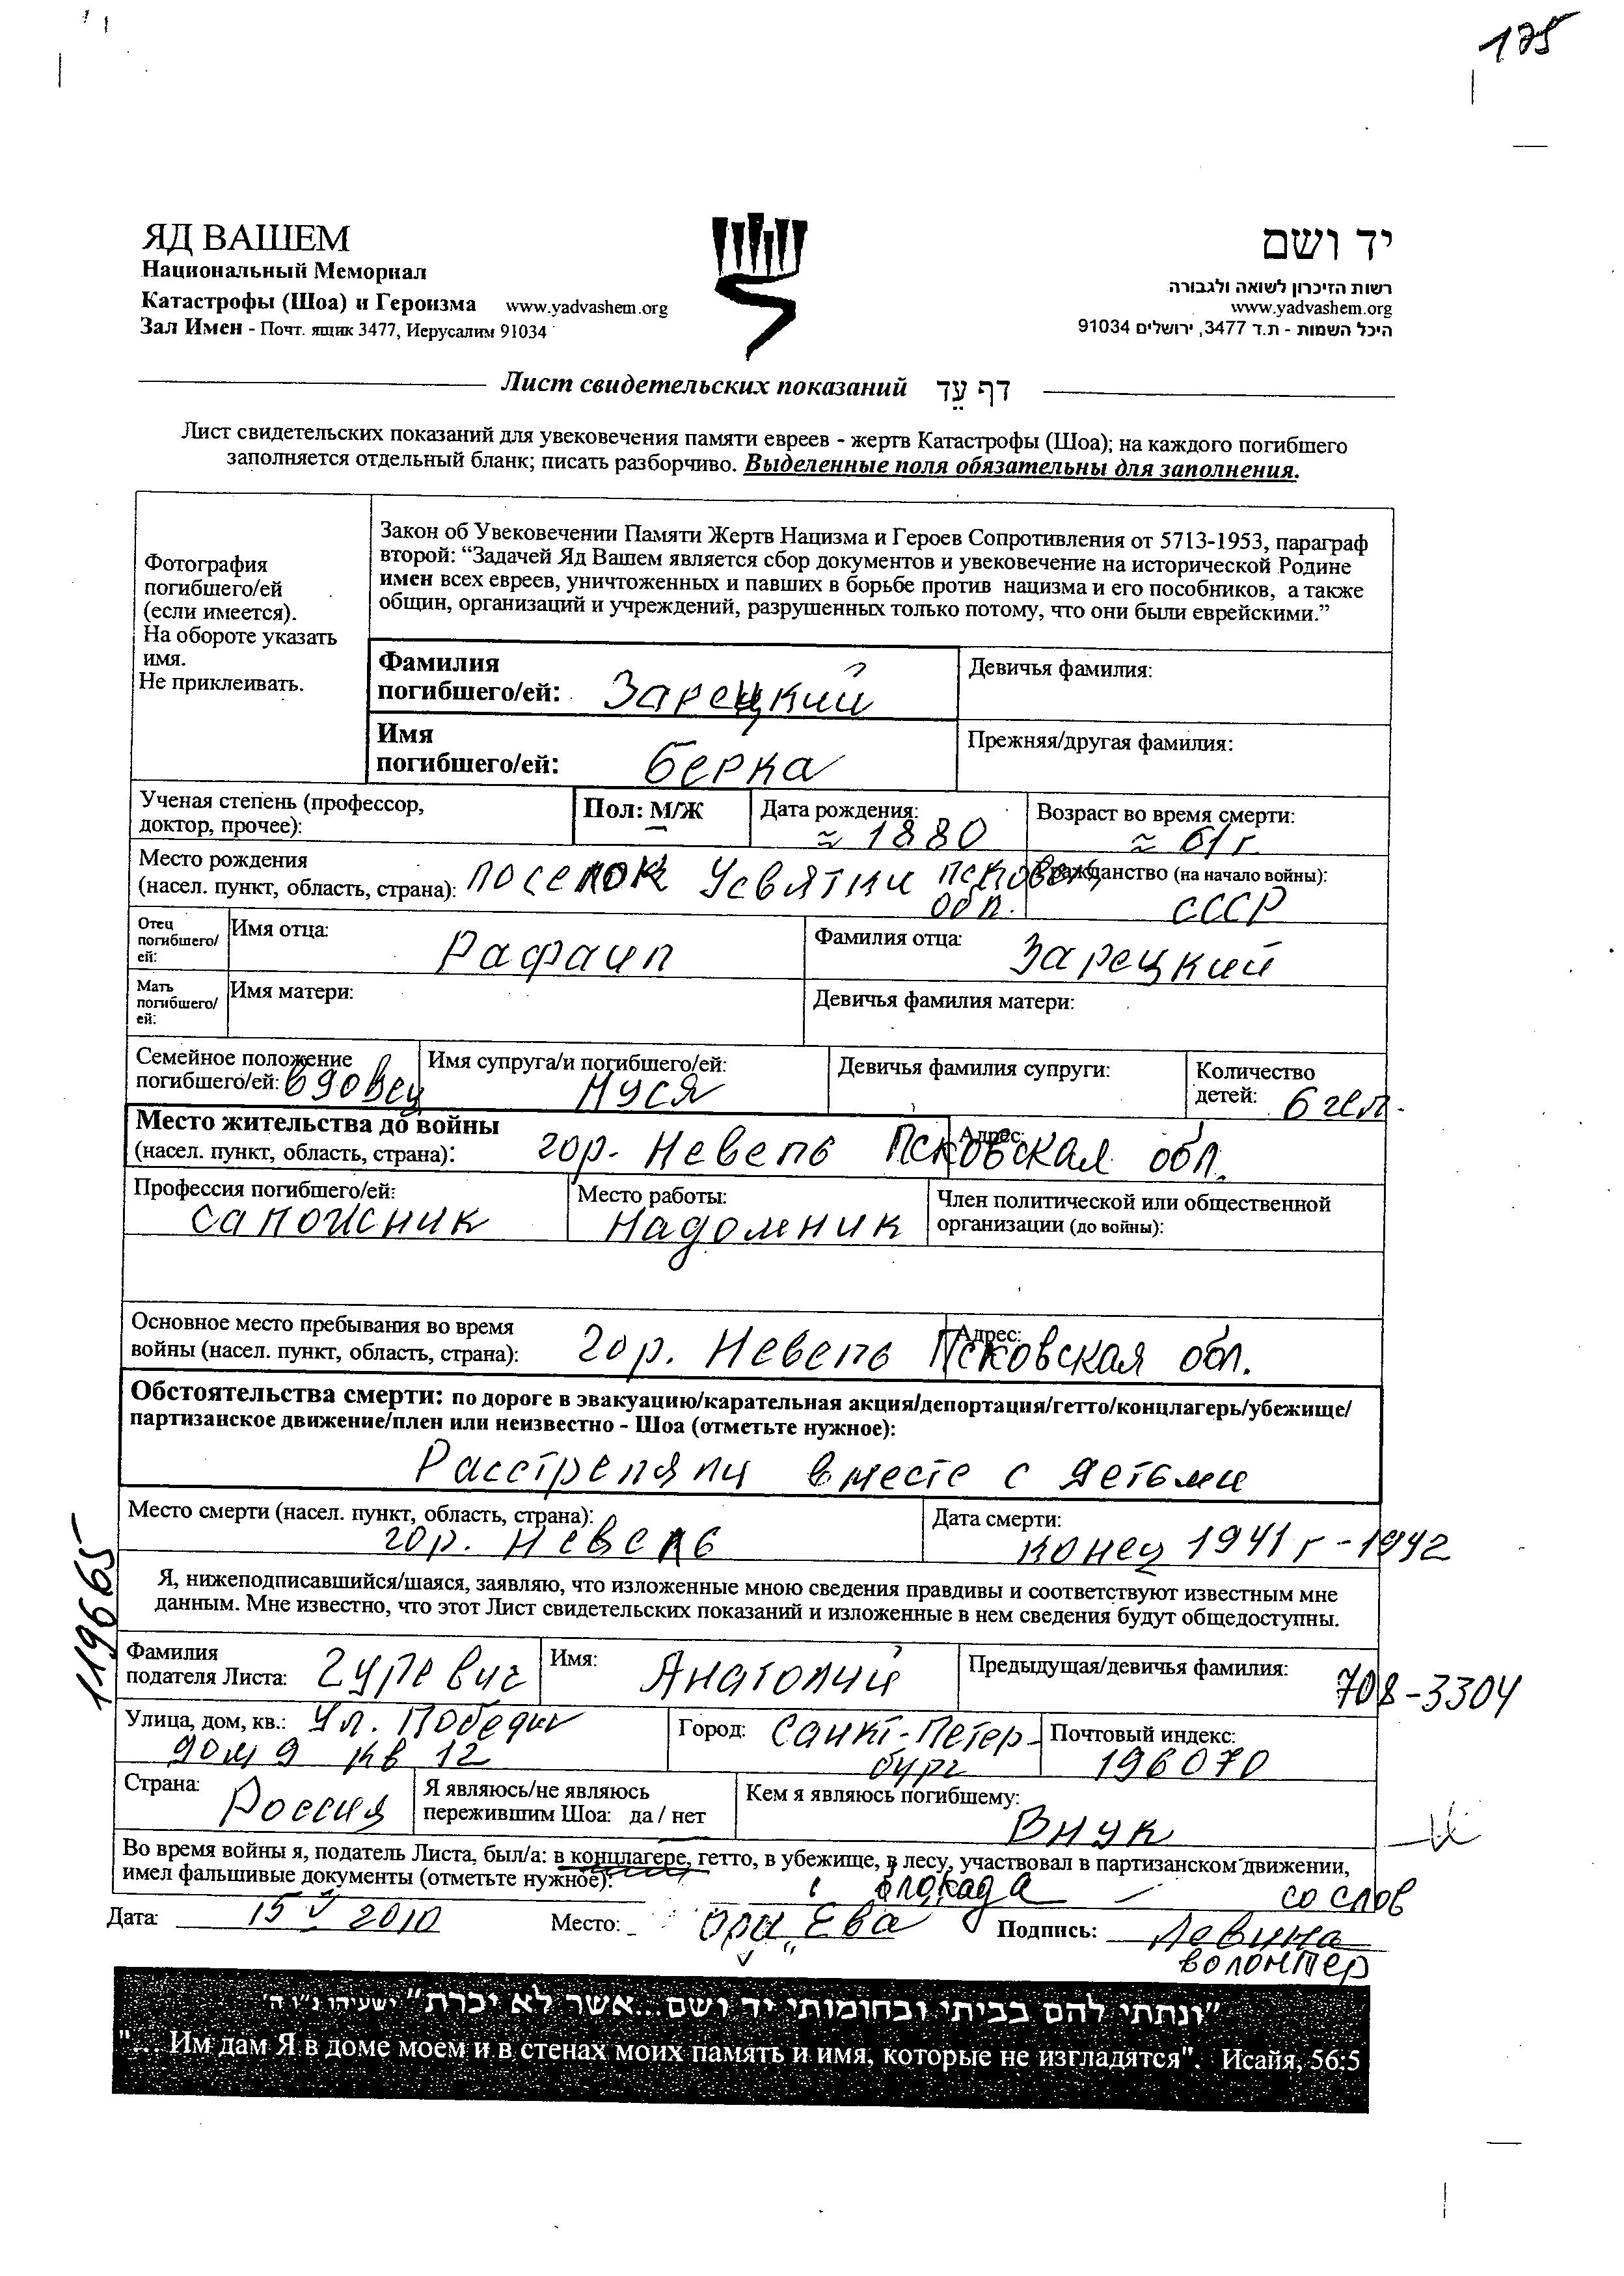 175
ЯД ВАШЕМ
Национальный Мемориал
Катастрофы (Шоа) и Героизма www.yadvashem.org
Зал Имен - Почт. ящик 3477, Иерусалим 91034
יד ושם
רשות הזיכרון לשואה ולגבורה
www.yadvashem.org
היכל השמות - ת.ד 3477, ירושלים 91034
Лист свидетельских показаний דף עֵד
Лист свидетельских показаний для увековечения памяти евреев - жертв Катастрофы (Шоа); на каждого погибшего
заполняется отдельный бланк; писать разборчиво. Выделенные поля обязательны для заполнения.
Фотография
погибшего/ей
(если имеется).
На обороте указать
имя.
Не приклеивать.
Закон об Увековечении Памяти Жертв Нацизма и Героев Сопротивления от 5713-1953, параграф
второй: “Задачей Яд Вашем является сбор документов и увековечение на исторической Родине
имен всех евреев, уничтоженных и павших в борьбе против нацизма и его пособников, а также
общин, организаций и учреждений, разрушенных только потому, что они были еврейскими.”
Фамилия
погибшего/ей: Зарецкий
Девичья фамилия:
Имя
погибшего/ей: Берка
Прежняя/другая фамилия:
Ученая степень (профессор,
доктор, прочее):
Пол: М/Ж
Дата рождения:
≈ 1880
Возраст во время смерти:
≈ 61 г.
Место рождения
(насел. пункт, область, страна): поселок Усвятки Псковск.
обл.
Гражданство (на начало войны):
СССР
Отец
погибшего/
ей:
Имя отца:
Рафаил
Фамилия отца:
Зарецкий
Мать
погибшего/
ей:
Имя матери:
Девичья фамилия матери:
Семейное положение
погибшего/ей: вдовец
Имя супруга/и погибшего/ей:
Нуся
Девичья фамилия супруги:
Количество
детей: 6 чел.
Место жительства до войны
(насел. пункт, область, страна): гор. Невель Псковская обл.
Адрес:
Профессия погибшего/ей:
сапожник
Место работы:
надомник
Член политической или общественной
организации (до войны):
Основное место пребывания во время
войны (насел. пункт, область, страна): гор. Невель Псковская обл.
Адрес:
Обстоятельства смерти: по дороге в эвакуацию/карательная акция/депортация/гетто/концлагерь/убежище/
партизанское движение/плен или неизвестно - Шоа (отметьте нужное):
Расстреляли вместе с детьми
Место смерти (насел. пункт, область, страна):
гор. Невель
Дата смерти:
конец 1941 г - 1942
119665
Я, нижеподписавшийся/шаяся, заявляю, что изложенные мною сведения правдивы и соответствуют известным мне
данным. Мне известно, что этот Лист свидетельских показаний и изложенные в нем сведения будут общедоступны.
Фамилия
подателя Листа: Гуревич
Имя: Анатолий
Предыдущая/девичья фамилия:
708-3304
Улица, дом, кв.: ул. Победы
дом 9 кв 12
Город: Санкт-Петер-
бург
Почтовый индекс:
196070
Страна: Россия
Я являюсь/не являюсь
пережившим Шоа: да / нет
Кем я являюсь погибшему:
Внук
Во время войны я, податель Листа, был/а: в концлагере, гетто, в убежище, в лесу, участвовал в партизанском движении,
имел фальшивые документы (отметьте нужное):
блокада — со слов
Дата: 15 V 2010
Место: орг „Ева“
Подпись: Левина
волонтер
"ונתתי להם בביתי ובחומותי יד ושם...אשר לא יכרת" ישעיהו נ"ו ה'
"... Им дам Я в доме моем и в стенах моих память и имя, которые не изгладятся". Исайя, 56:5